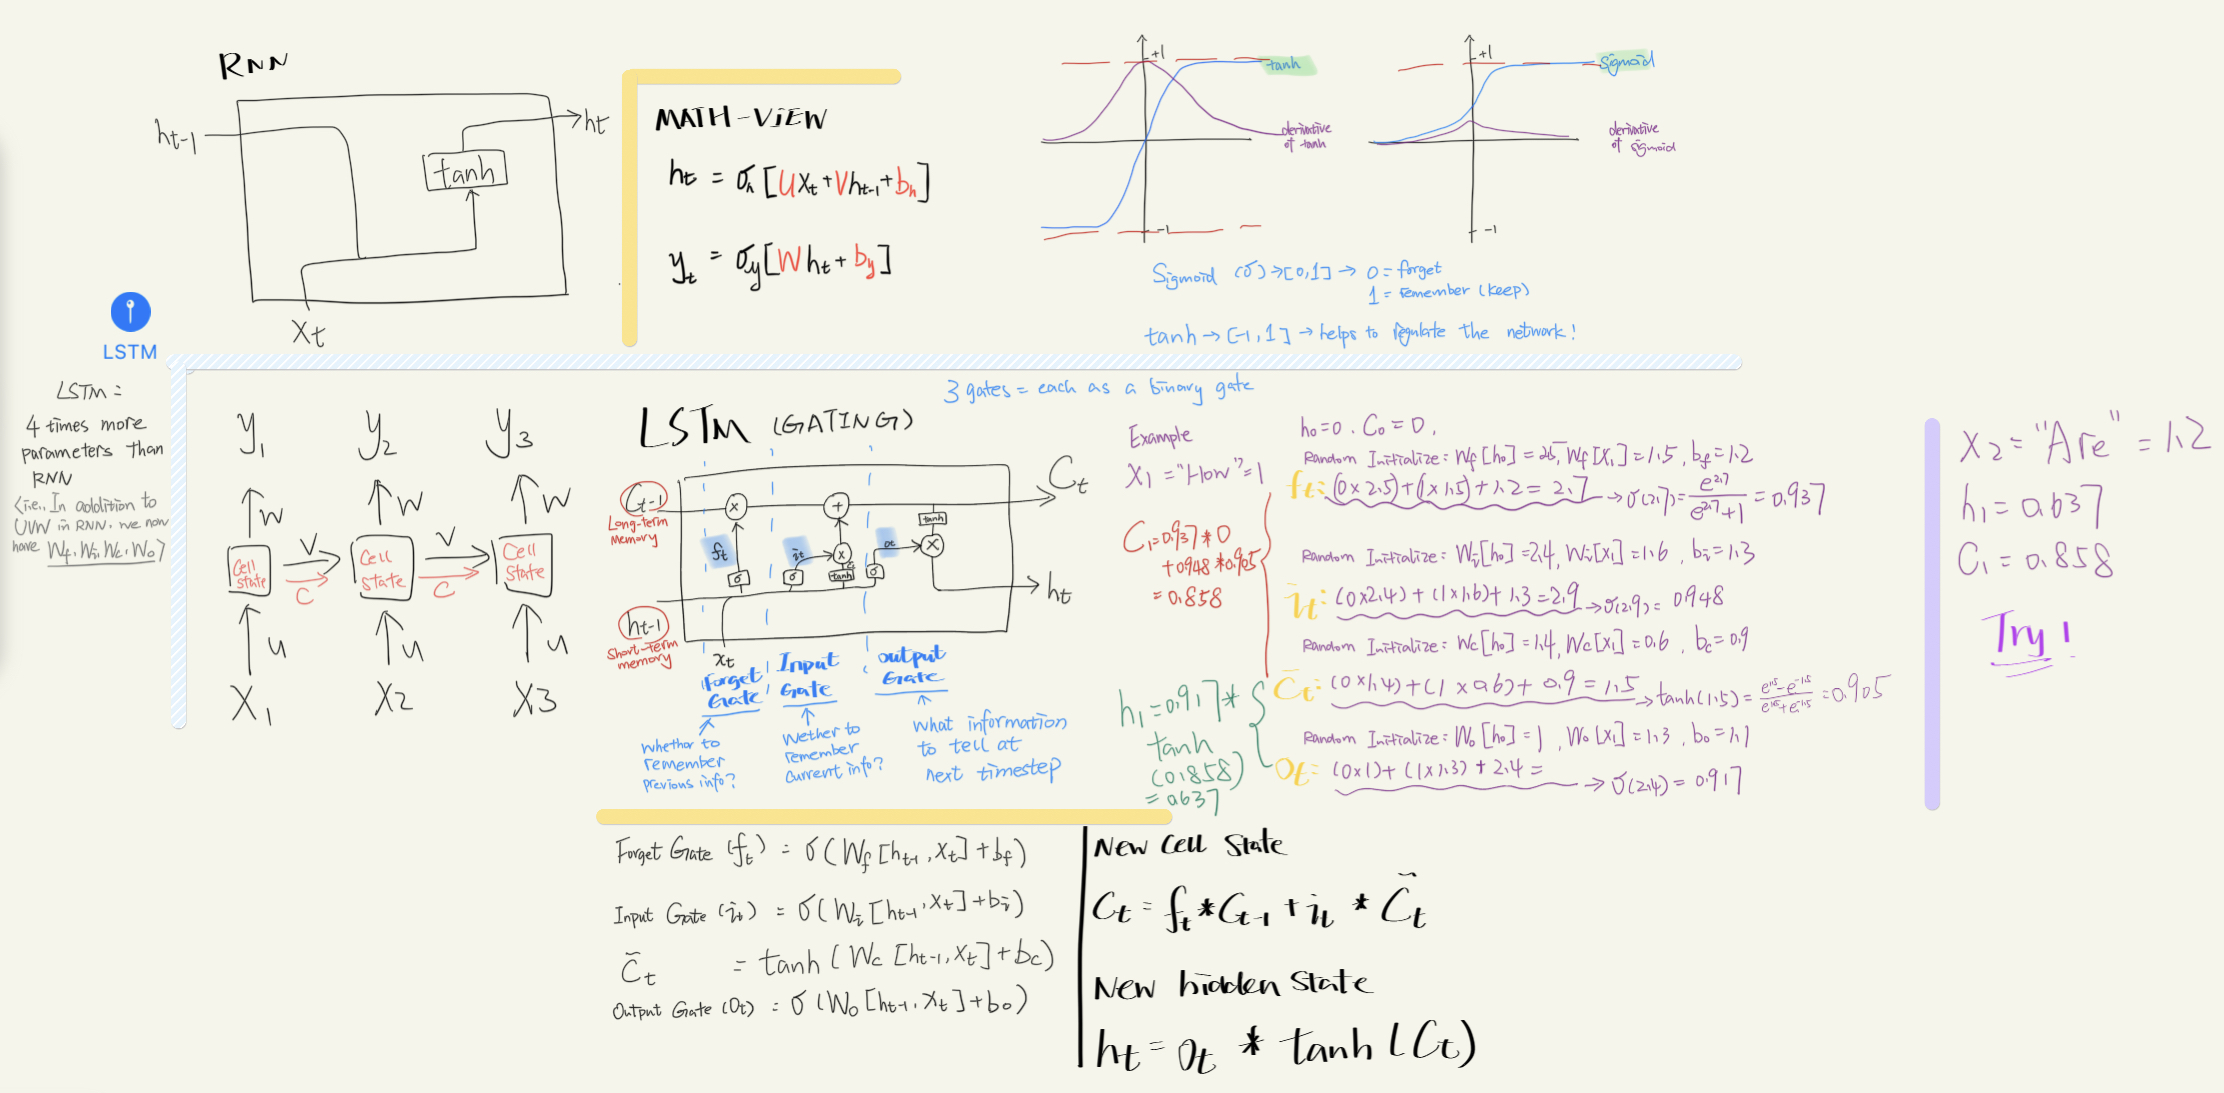 RNN
ht-1
tanh
ht
xt
MATH-VIEW
ht = σh [Uxt+Vht-1+bh]
yt = σy[Wht+by]
+1
tanh
derivative
of tanh
-1
+1
Sigmoid
derivative
of sigmoid
-1
Sigmoid (σ) → [0,1] → 0 = forget
1 = remember (keep)
tanh → [-1, 1] → helps to regulate the network!
LSTM
LSTM =
4 times more
parameters than
RNN
(i.e., In addition to
UVW in RNN. we now
have Wf, Wi, Wc, Wo)
y1
y2
y3
W
W
W
V
V
Cell
State
Cell
State
Cell
State
C
C
U
U
U
X1
X2
X3
3 gates = each as a binary gate
LSTM (GATING)
Ct-1
Long-term
Memory
Ct
x
+
tanh
ft
it
x
ot
x
σ
σ
tanh
σ
ht-1
Short-term
memory
ht
xt
Forget
Gate
Input
Gate
output
Gate
Whether to
remember
previous info?
Wether to
remember
current info?
What information
to tell at
next timestep
Example
X1 = "How" = 1
h0=0. C0=0,
Random Initialize: Wf[h0] = 2.5, Wf[X1] = 1.5, bf=1.2
ft: (0×2.5)+(1×1.5)+1.2 = 2.7 → σ(2.7) = e^2.7/e^2.7+1 = 0.937
Random Initialize: Wi[h0]=2.4, Wi[X1]=1.6, bi=1.3
it: (0×2.4)+(1×1.6)+1.3=2.9 → σ(2.9)= 0.948
Random Initialize: Wc[h0]=1.4, Wc[X1]=0.6, bc=0.9
C̃t: (0×1.4)+(1×0.6)+0.9=1.5 → tanh(1.5) = e^1.5-e^-1.5/e^1.5+e^-1.5 = 0.905
Random Initialize: Wo[h0]=1, Wo[X1]=1.3, bo=1.1
Ot: (0×1)+(1×1.3)+2.4= → σ(2.4) = 0.917
C1=0.937*0
+0.948*0.905
=0.858
h1=0.917*
tanh
(0.858)
=0.637
X2="Are"=1.2
h1=0.637
C1=0.858
Try!
Forget Gate (ft) = σ(Wf[ht-1,Xt]+bf)
Input Gate (it) = σ(Wi[ht-1,Xt]+bi)
C̃t = tanh(Wc[ht-1,Xt]+bc)
Output Gate (Ot) = σ(Wo[ht-1,Xt]+bo)
New Cell State
Ct = ft*Ct-1 + it * C̃t
New hidden State
ht = Ot * tanh(Ct)